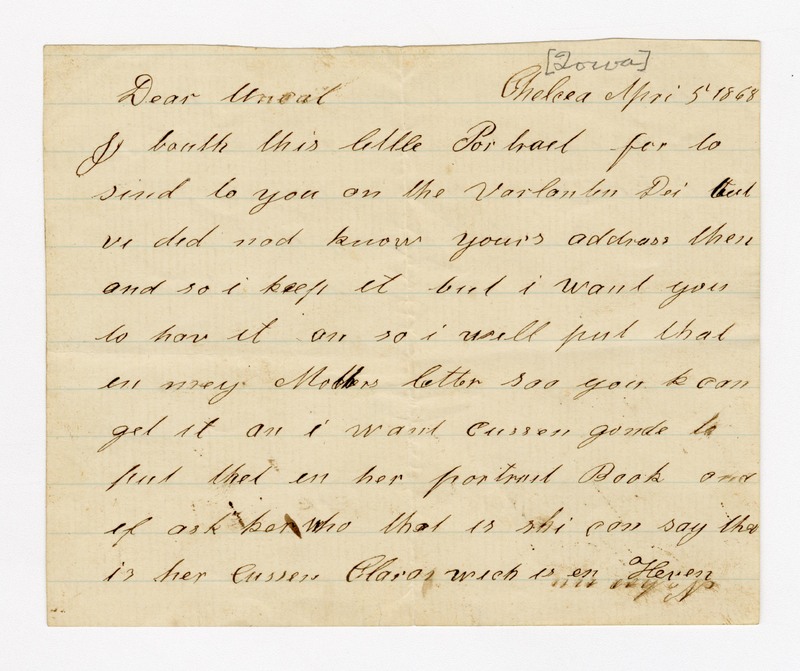 [Iowa]
Dear Uncal Chelcea Apri 5 1868
I bouth this little Portraet for to
sind to you on the Varlantin Dei but
vi did nod know yours address then
and so i keep it but i want you
to hav it an so i will put that
in mey Mothers letter soo you k can
get it an i want Cussen gonde to
put thet in her portraid Book and
if ask her who that is shi can say that
is her Cussen Claras wich is en Heven